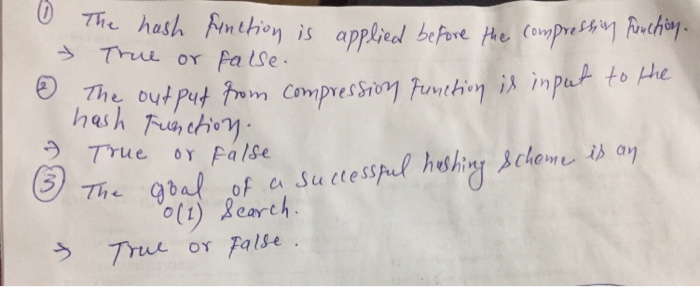 ① The hash Function is applied before the compression Function.
→ True or False.
② The output from compression Function is input to the
hash Function.
→ True or False
③ The goal of a successful hashing scheme is an
O(1) Search.
→ True or False.